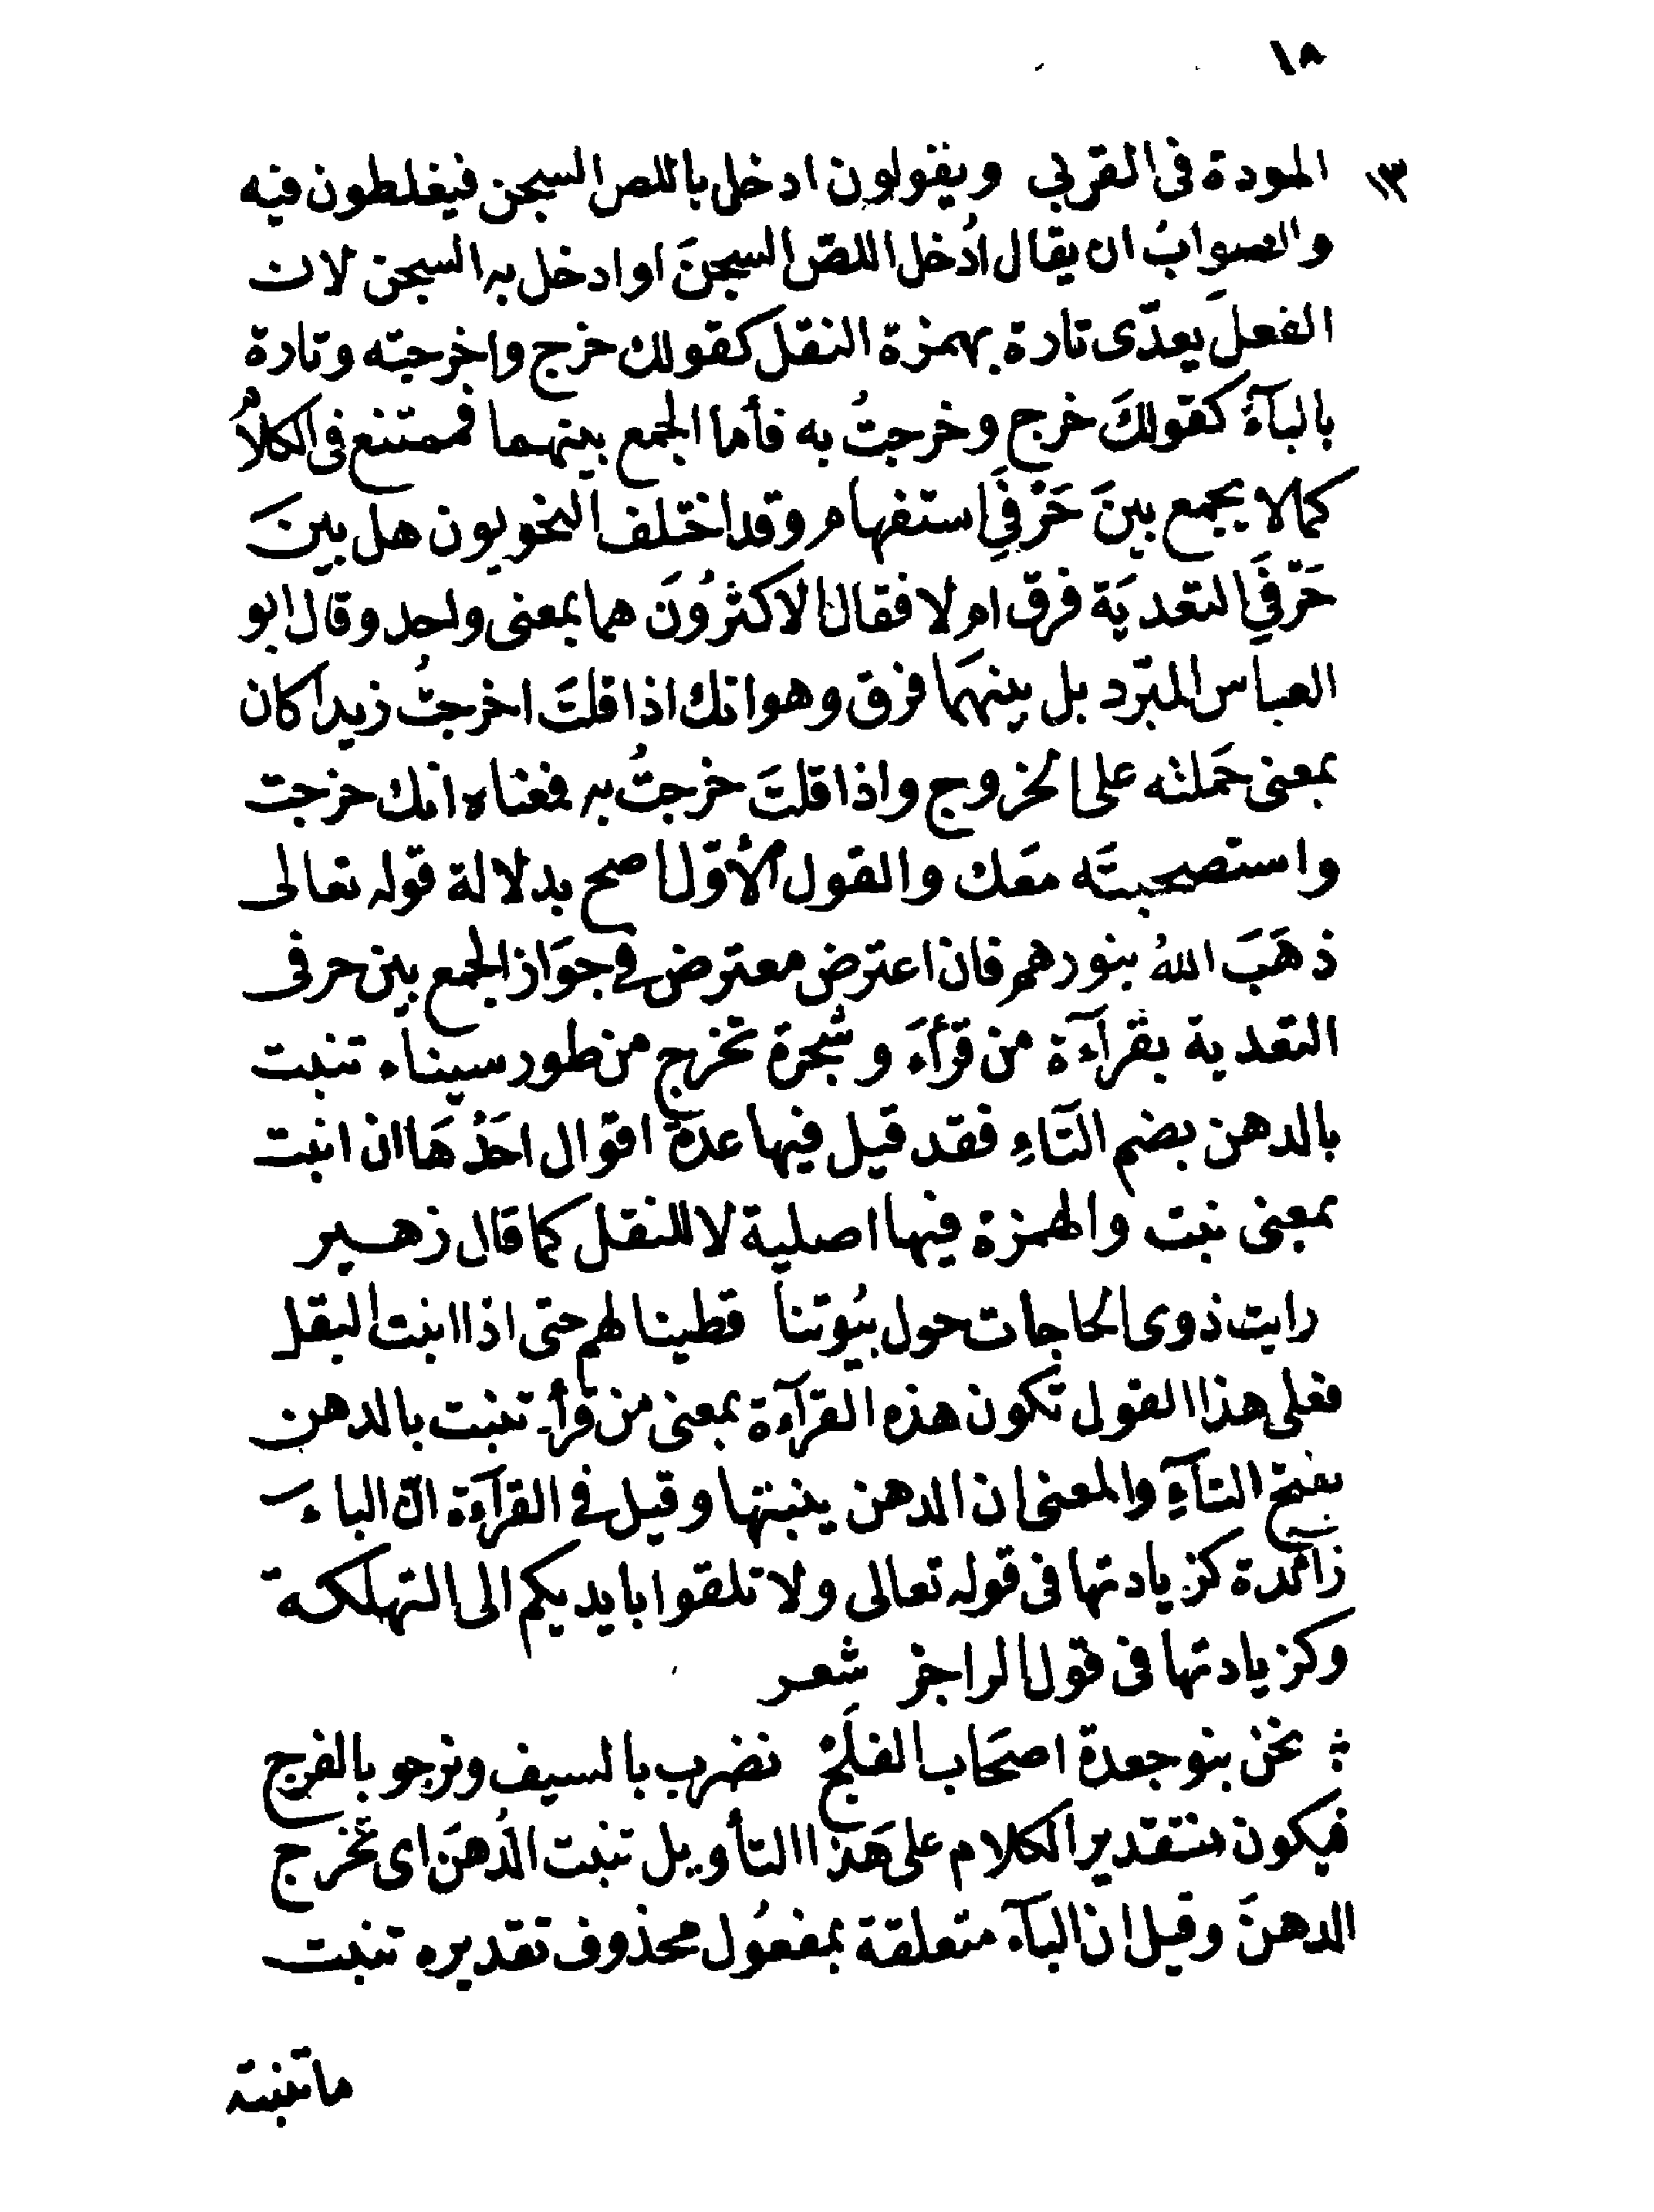 ١٨
١٣ المودة فى القربى ويقولون ادخل باللص السجن فيغلطون فيه
والصوابُ ان يقال اُدْخل اللصّ السجنَ او ادخل به السجن لان
الفعلَ يعدّى تارة بهمزة النقل كقولك خرج واخرجته وتارة
بالبآءِ كقولكَ خرج وخرجتُ به فأما الجمع بينهما فممتنع فى الكلام
كما لا يجمع بينَ حَرْفَيِ استفهام وقد اختلف النحويون هل بينَ
حَرْفَيِ التعديَة فرق ام لا فقال الاكثرُونَ هما بمعنى واحد وقال ابو
العباس المبرّد بل بينهمَا فرق وهو انك اذا قلتَ اخرجتُ زيدا كان
بمعنى حَملته على الخروج واذا قلتَ خرجتُ به فمعناه انك خرجت
واستصحبتَه معَك والقول الأوّل اصح بدلالة قوله تعالى
ذهَبَ اللهُ بنورهم فان اعترض معترض فى جوَاز الجمع بين حرفى
التعدية بقرآءة من قرأءَ وشجرة تخرج من طور سيناء تنبت
بالدهن بضم التّاءِ فقد قيل فيها عدّة اقوال احَدُهَا ان انبت
بمعنى نبت والهمزة فيها اصلية لا للنقل كما قال زهير
رايت ذوى الحاجات حول بيُوتنا قطينا لهم حتى اذا انبت البقل
فعلى هذا القول تكون هذه القرآءة بمعنى من قرأ تنبت بالدهن
بفتح التآءِ والمعنى ان الدهن ينبتها وقيل فى القرآءة انّ الباءَ
زآئدة كزيادتها فى قوله تعالى ولا تلقوا بايديكم الى التهلكة
وكزيادتها فى قول الراجز شعر
نحن بنو جعدة اصحَاب الفلَجْ نضرب بالسيف ونرجو بالفرج
فيكون تقدير الكلام على هَذا التأويل تنبت الدُهنَ اى تُخرج
الدهنَ وقيل ان البآء متعلقة بمفعُول محذوف تقديره تنبت
ما تنبته